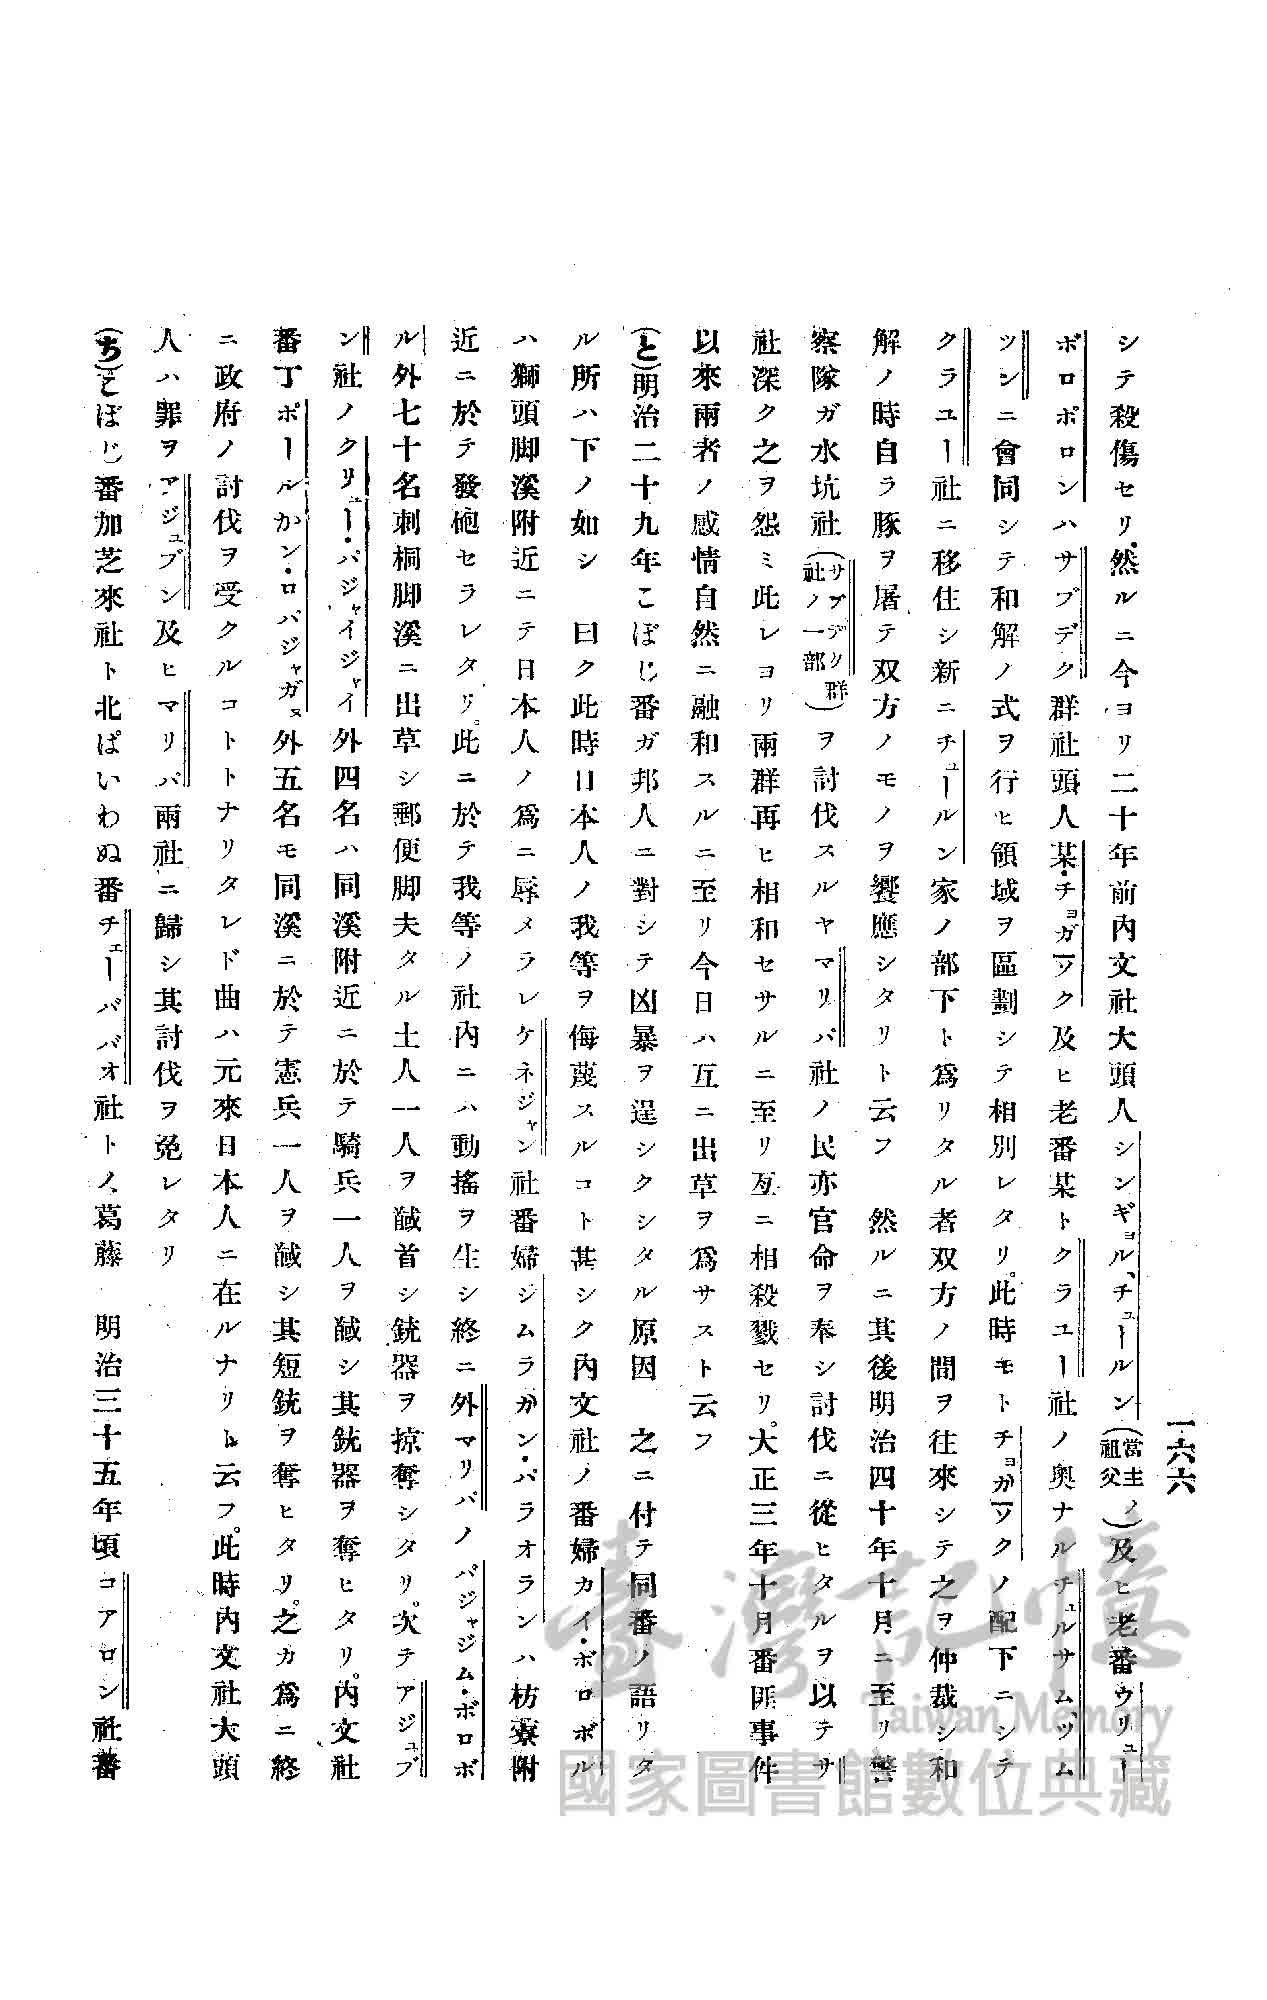 一六六
シテ殺傷セリ、然ルニ今ヨリ二十年前內文社大頭人シンギョル、チュールン(當主ノ祖父)及ヒ老番ウリュー
ボロボロンハサブデク群社頭人某・チョガアック及ヒ老番某トクラユー社ノ奧ナルチュルサムヽツム
ツンニ會同シテ和解ノ式ヲ行ヒ領域ヲ區劃シテ相別レタリ。此時モトチョガアックノ配下ニシテ
クラユー社ニ移住シ新ニチュールン家ノ部下ト爲リタル者双方ノ間ヲ往來シテ之ヲ仲裁シ和
解ノ時自ラ豚ヲ屠テ双方ノモノヲ饗應シタリト云フ　然ルニ其後明治四十年十月ニ至リ警
察隊ガ水坑社(サブデク群社ノ一部)ヲ討伐スルヤマリパ社ノ民亦官命ヲ奉シ討伐ニ從ヒタルヲ以テサ
社深ク之ヲ怨ミ此レヨリ兩群再ヒ相和セサルニ至リ亙ニ相殺戮セリ。大正三年十月番匪事件
以來兩者ノ感情自然ニ融和スルニ至リ今日ハ互ニ出草ヲ爲サスト云フ
(と)明治二十九年こぼじ番ガ邦人ニ對シテ凶暴ヲ逞シクシタル原因　之ニ付テ同番ノ語リタ
ル所ハ下ノ如シ　曰ク此時日本人ノ我等ヲ侮蔑スルコト甚シク內文社ノ番婦カイ・ボロボル
ハ獅頭脚溪附近ニテ日本人ノ爲ニ辱メラレケネジャン社番婦ジムラカン・パラオランハ枋寮附
近ニ於テ發砲セラレタリ。此ニ於テ我等ノ社內ニハ動搖ヲ生シ終ニ外マリパノバジャジム・ボロボ
ル外七十名刺桐脚溪ニ出草シ郵便脚夫タル土人一人ヲ馘首シ銃器ヲ掠奪シタリ。次テアジュブ
ン社ノクリュー・バジャイジャイ外四名ハ同溪附近ニ於テ騎兵一人ヲ馘シ其銃器ヲ奪ヒタリ。內文社
番丁ポールかン・ロバジャガヌ外五名モ同溪ニ於テ憲兵一人ヲ馘シ其短銃ヲ奪ヒタリ。之カ爲ニ終
ニ政府ノ討伐ヲ受クルコトトナリタレド曲ハ元來日本人ニ在ルナリト云フ。此時內文社大頭
人ハ罪ヲアジュブン及ヒマリパ兩社ニ歸シ其討伐ヲ免レタリ
(ち)こぼじ番加芝來社ト北ぱいわぬ番チェーパパオ社トノ葛藤　明治三十五年頃コアロン社番
臺灣記憶
Taiwan Memory
國家圖書館數位典藏